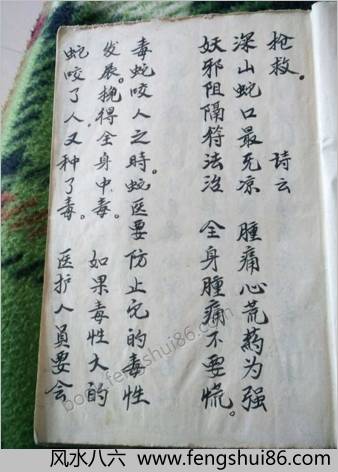 抢救。 诗云
深山蛇口最无凉 腫痛心荒药为强
妖邪阻隔符法治 全身腫痛不要慌。
毒蛇咬人之時。蛇医要防止它的毒性
发展。挽得全身中毒。 如果毒性大的
蛇咬了人又种了毒。 医护人員要会
book.fengshui86.com
风水八六 www.fengshui86.com